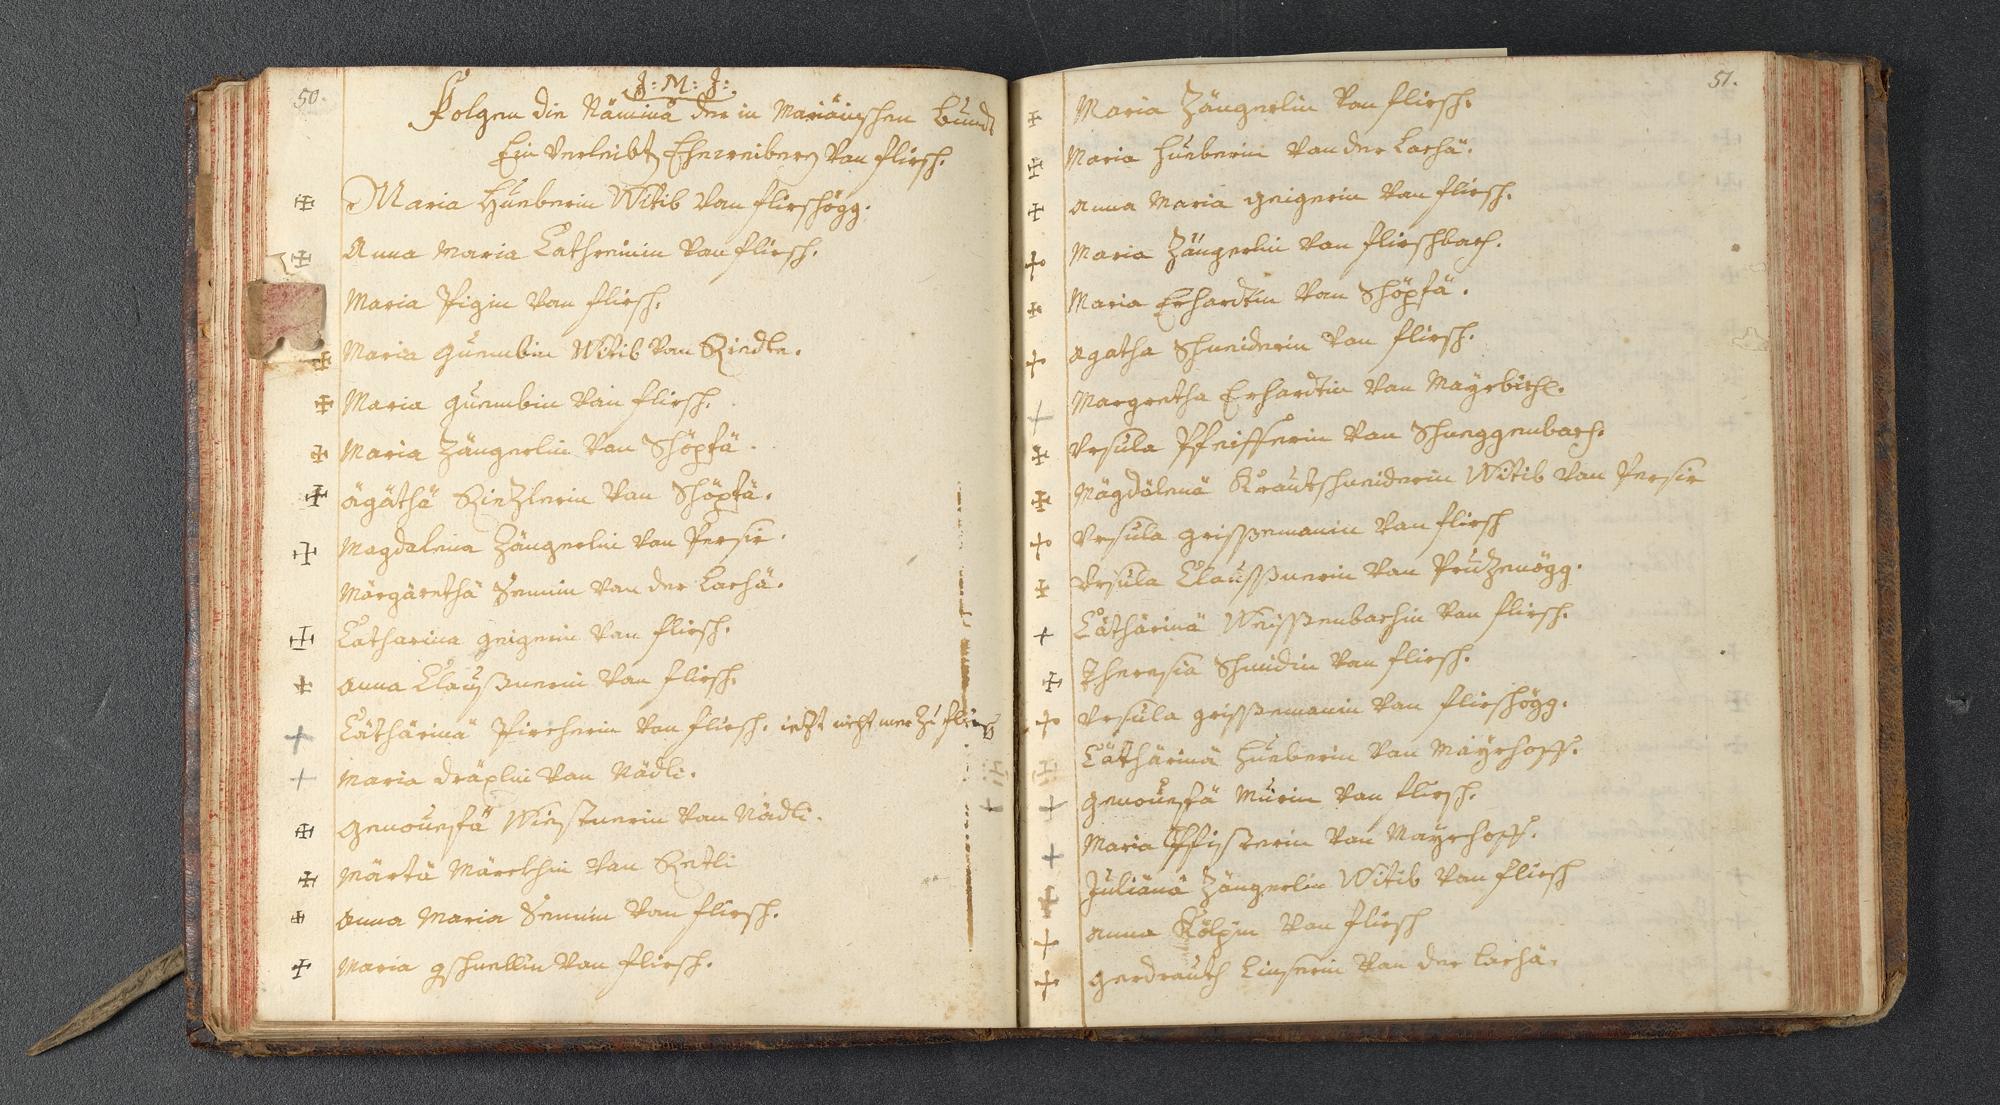 50.
J: M: J:
Folgen die Näminä der in Mariänischen Bundt
Ein Verleibt Eheweiberen Von flirsch.
Maria Hueberin Witib Von flirschögg.
Anna Maria Cathreinin Von flirsch.
Maria Figin Von flirsch.
Maria Guembin Witib Von Riedle.
Maria guembin Von flirsch.
Maria Zängerlin Von Schöpfä.
ägäthä Riezlerin Von Schöpfä.
Magdalena Zängerlin Von Persir.
Märgärethä Sennin Von der Lachä.
Catharina geigerin Von flirsch.
Anna Claußnerin Von flirsch.
Cäthärinä Pircherin Von flirsch. iezt nicht mer zu flirsch
Maria dräxlin Von Nädli.
genouefä Wiestnerin Von Nädli.
Märtä Märckhin Von
Anna Maria Sennin Von flirsch.
Maria gschnellin Von flirsch.
51.
Maria Zängerlin Von flirsch.
Maria Hueberin Von der Lachä.
Anna Maria geigerin Von flirsch.
Maria Zängerlin Von flirschbach.
Maria Erhardtin Von Schöpfä.
Agatha Schneiderin Von flirsch.
Margretha Erhardtin Von Mayrbichl.
Vrsula Pfeifferin Von Schneggenbach.
Mägdälenä Krautschneiderin Witib Von Persir
Vrsula grissemanin Von flirsch
Vrsula Claussnerin Von Pruzenögg.
Cäthärinä Weissenbachin Von flirsch.
Theresia Schmidin Von flirsch.
Vrsula grissemanin Von flirschögg.
Cäthärinä Hueberin Von Mäyrhoff.
genouefä Murin Von flirsch.
Maria Pfisterin Von Mayrhoff.
Juliänä Zängerlin Witib Von flirsch
Anna Von flirsch
gerdrauth Linserin Von der Lachä.